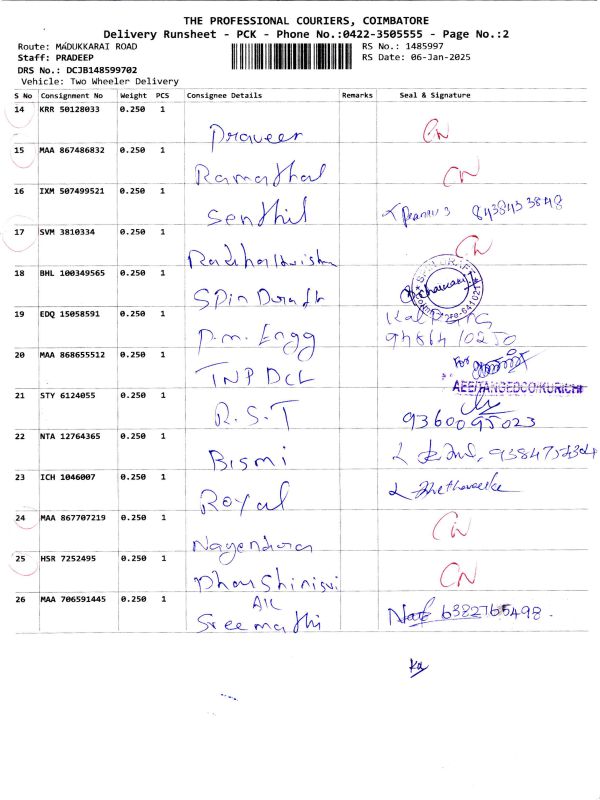 THE PROFESSIONAL COURIERS, COIMBATORE
Delivery Runsheet - PCK - Phone No.:0422-3505555 - Page No.:2
Route: MADUKKARAI ROAD
RS No.: 1485997
Staff: PRADEEP
RS Date: 06-Jan-2025
DRS No.: DCJB148599702
Vehicle: Two Wheeler Delivery
S No Consignment No Weight PCS Consignee Details Remarks Seal & Signature
14 KRR 50128033 0.250 1 Praveer CN
15 MAA 867486832 0.250 1 Ramathal CN
16 IXM 507499521 0.250 1 Senthil 8438453848
17 SVM 3810334 0.250 1 Radhakrishn CN
18 BHL 100349565 0.250 1 Spin Draft
19 EDQ 15058591 0.250 1 P.M. Engg
20 MAA 868655512 0.250 1 TNPDCL For
AEE/TANGEDCO/KURICHI
21 STY 6124055 0.250 1 R.S.T 9360095023
22 NTA 12764365 0.250 1 Bismi
23 ICH 1046007 0.250 1 Royal
24 MAA 867707219 0.250 1 Nagendora CN
25 HSR 7252495 0.250 1 CN
26 MAA 706591445 0.250 1 Sreemathi 6382765498